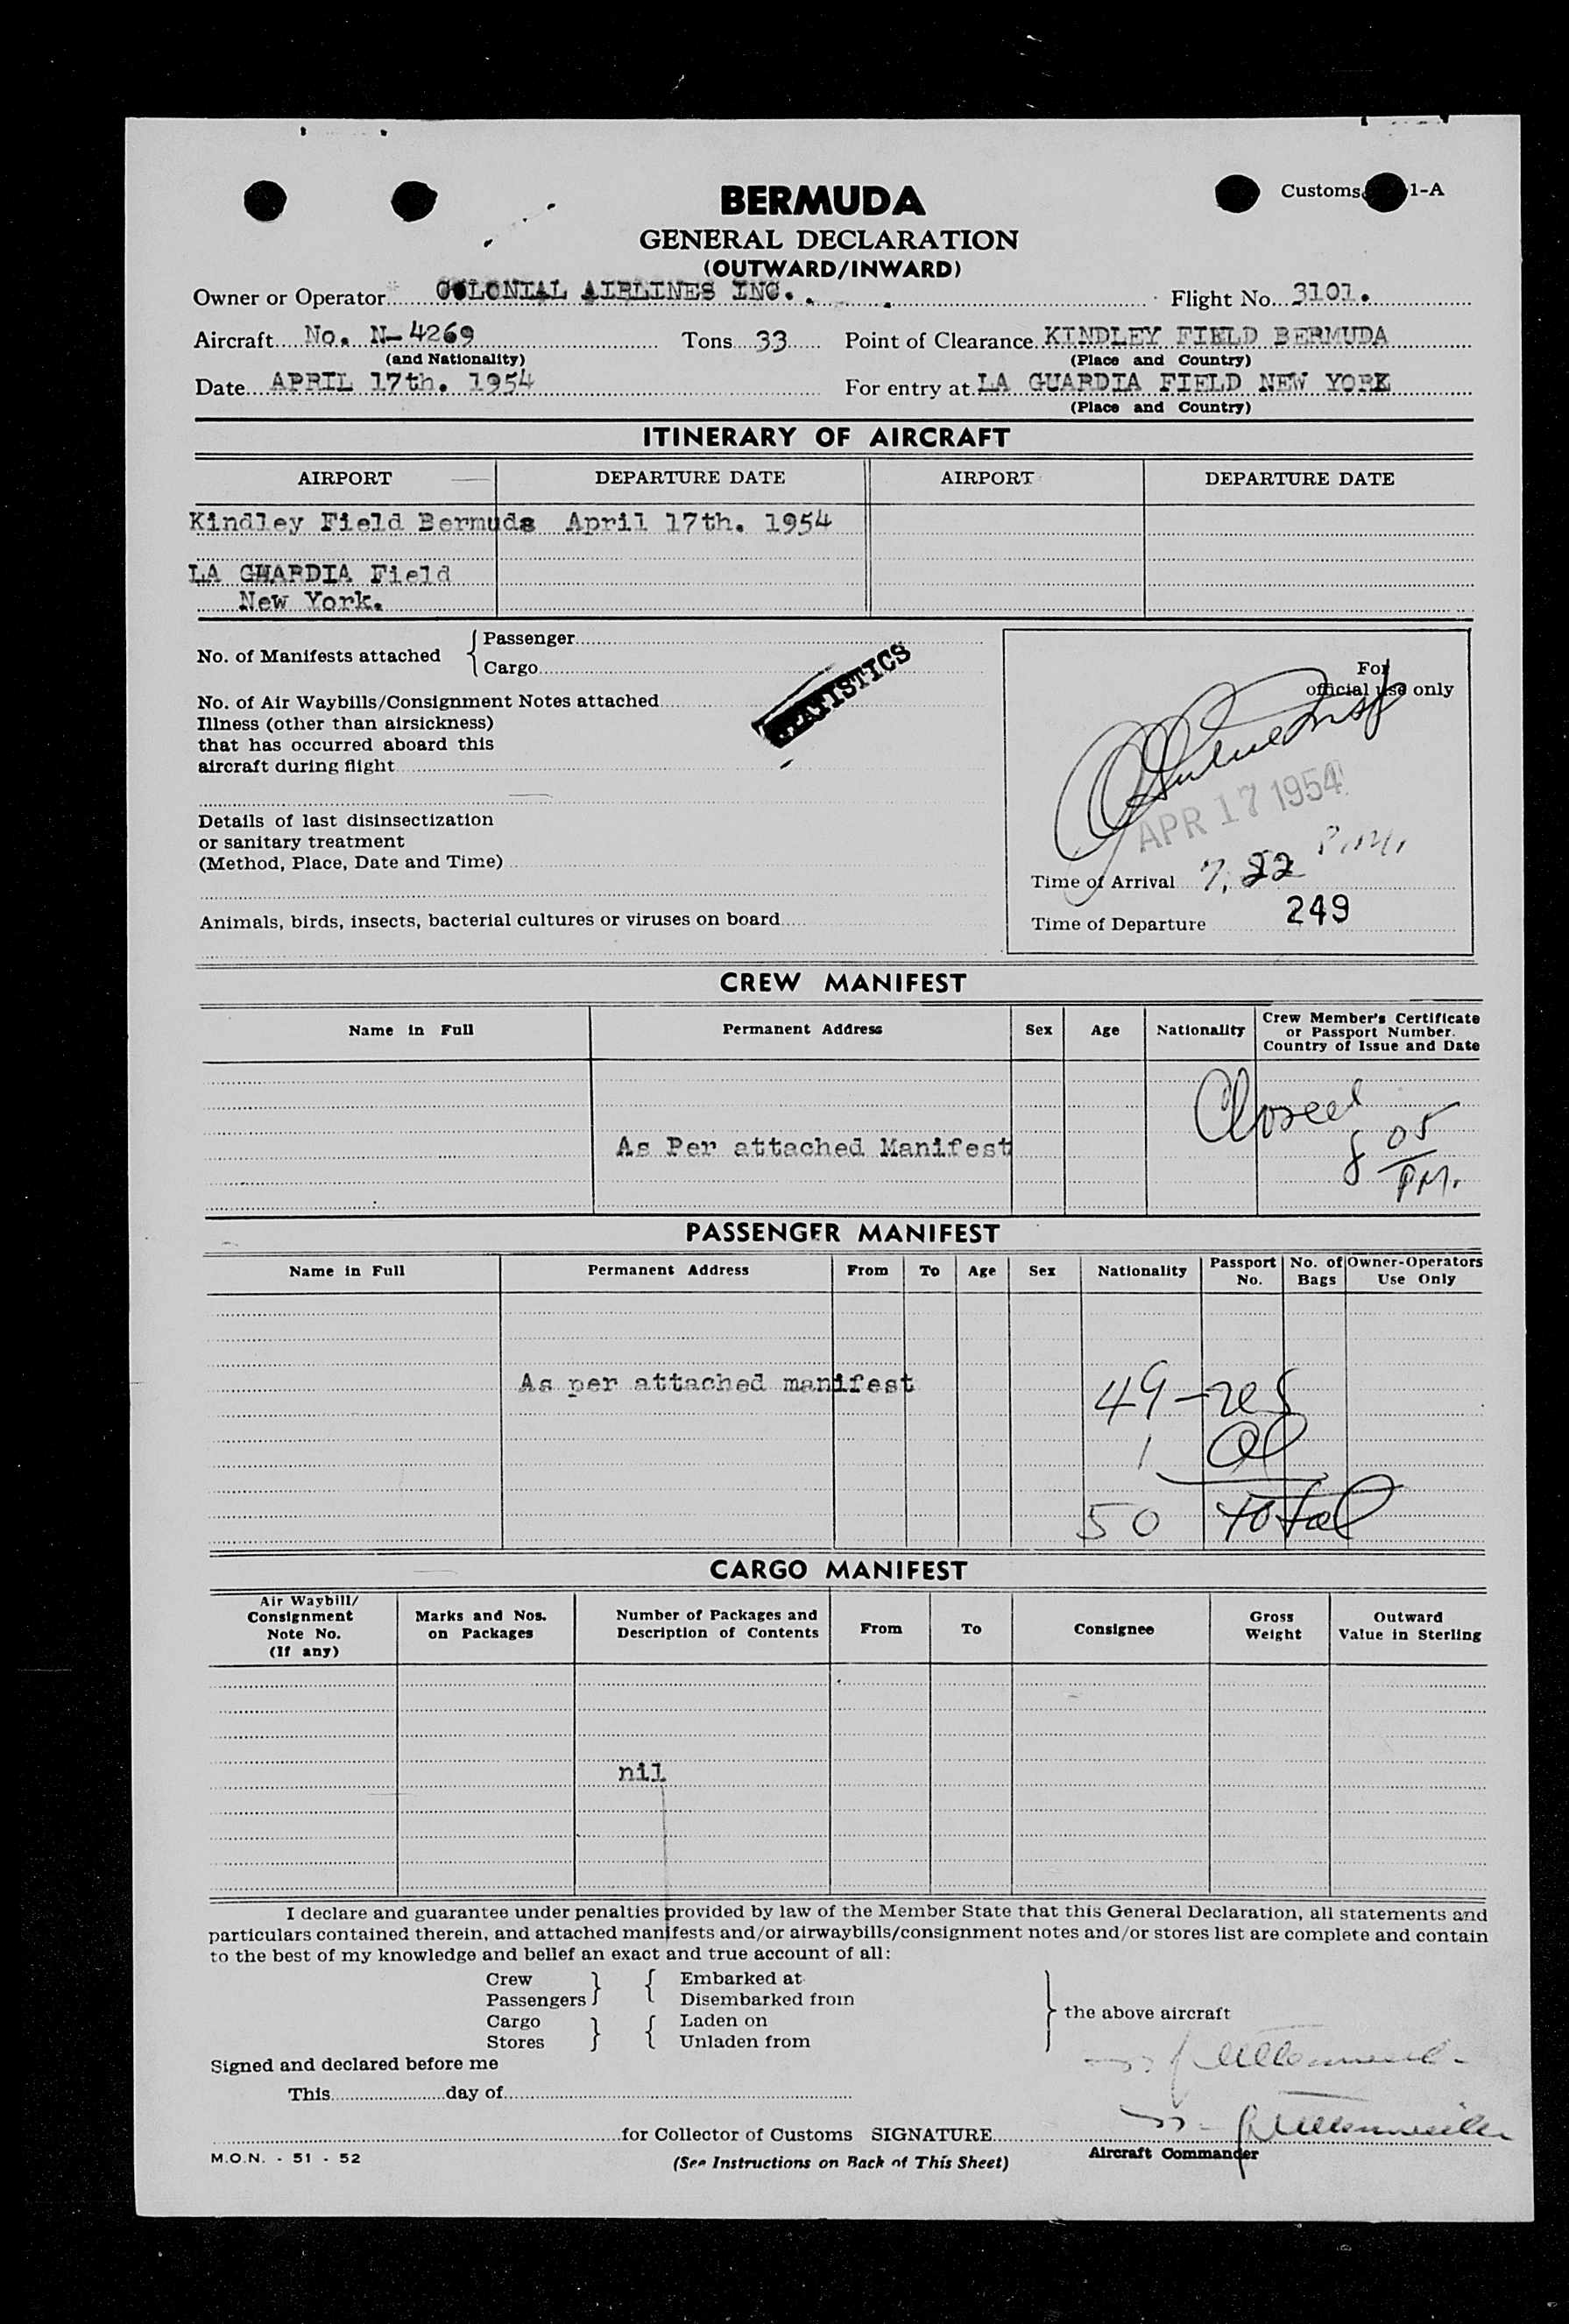 Customs 1-A
BERMUDA
GENERAL DECLARATION
(OUTWARD/INWARD)
Owner or Operator COLONIAL AIRLINES INC. Flight No. 3101.
Aircraft No. N-4269 Tons 33 Point of Clearance KINDLEY FIELD BERMUDA
(and Nationality) (Place and Country)
Date APRIL 17th. 1954 For entry at LA GUARDIA FIELD NEW YORK
(Place and Country)
ITINERARY OF AIRCRAFT
AIRPORT DEPARTURE DATE AIRPORT DEPARTURE DATE
Kindley Field Bermuda April 17th. 1954
LA GUARDIA Field
New York.
No. of Manifests attached { Passenger
Cargo
STATISTICS
For
official use only
No. of Air Waybills/Consignment Notes attached
Illness (other than airsickness)
that has occurred aboard this
aircraft during flight
APR 17 1954
Details of last disinsectization
or sanitary treatment
(Method, Place, Date and Time)
Time of Arrival 7.22 P.M.
Animals, birds, insects, bacterial cultures or viruses on board
Time of Departure 249
CREW MANIFEST
Name in Full Permanent Address Sex Age Nationality Crew Member's Certificate
or Passport Number.
Country of Issue and Date
Closed
As Per attached Manifest
8 05
PM.
PASSENGER MANIFEST
Name in Full Permanent Address From To Age Sex Nationality Passport No. No. of Bags Owner-Operators Use Only
As per attached manifest
49-res
1 al
50 total
CARGO MANIFEST
Air Waybill/ Consignment Note No. (If any) Marks and Nos. on Packages Number of Packages and Description of Contents From To Consignee Gross Weight Outward Value in Sterling
nil
I declare and guarantee under penalties provided by law of the Member State that this General Declaration, all statements and
particulars contained therein, and attached manifests and/or airwaybills/consignment notes and/or stores list are complete and contain
to the best of my knowledge and belief an exact and true account of all:
Crew } { Embarked at
Passengers Disembarked from
Cargo } { Laden on } the above aircraft
Stores Unladen from
Signed and declared before me
This day of
for Collector of Customs SIGNATURE
Aircraft Commander
M.O.N. - 51 - 52 (See Instructions on Back of This Sheet)